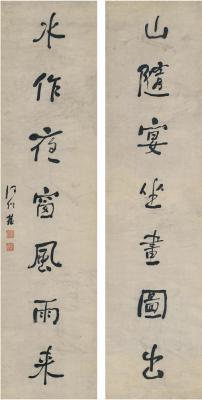 山隨宴坐畫圖出
水作夜窗風雨来
何紹基